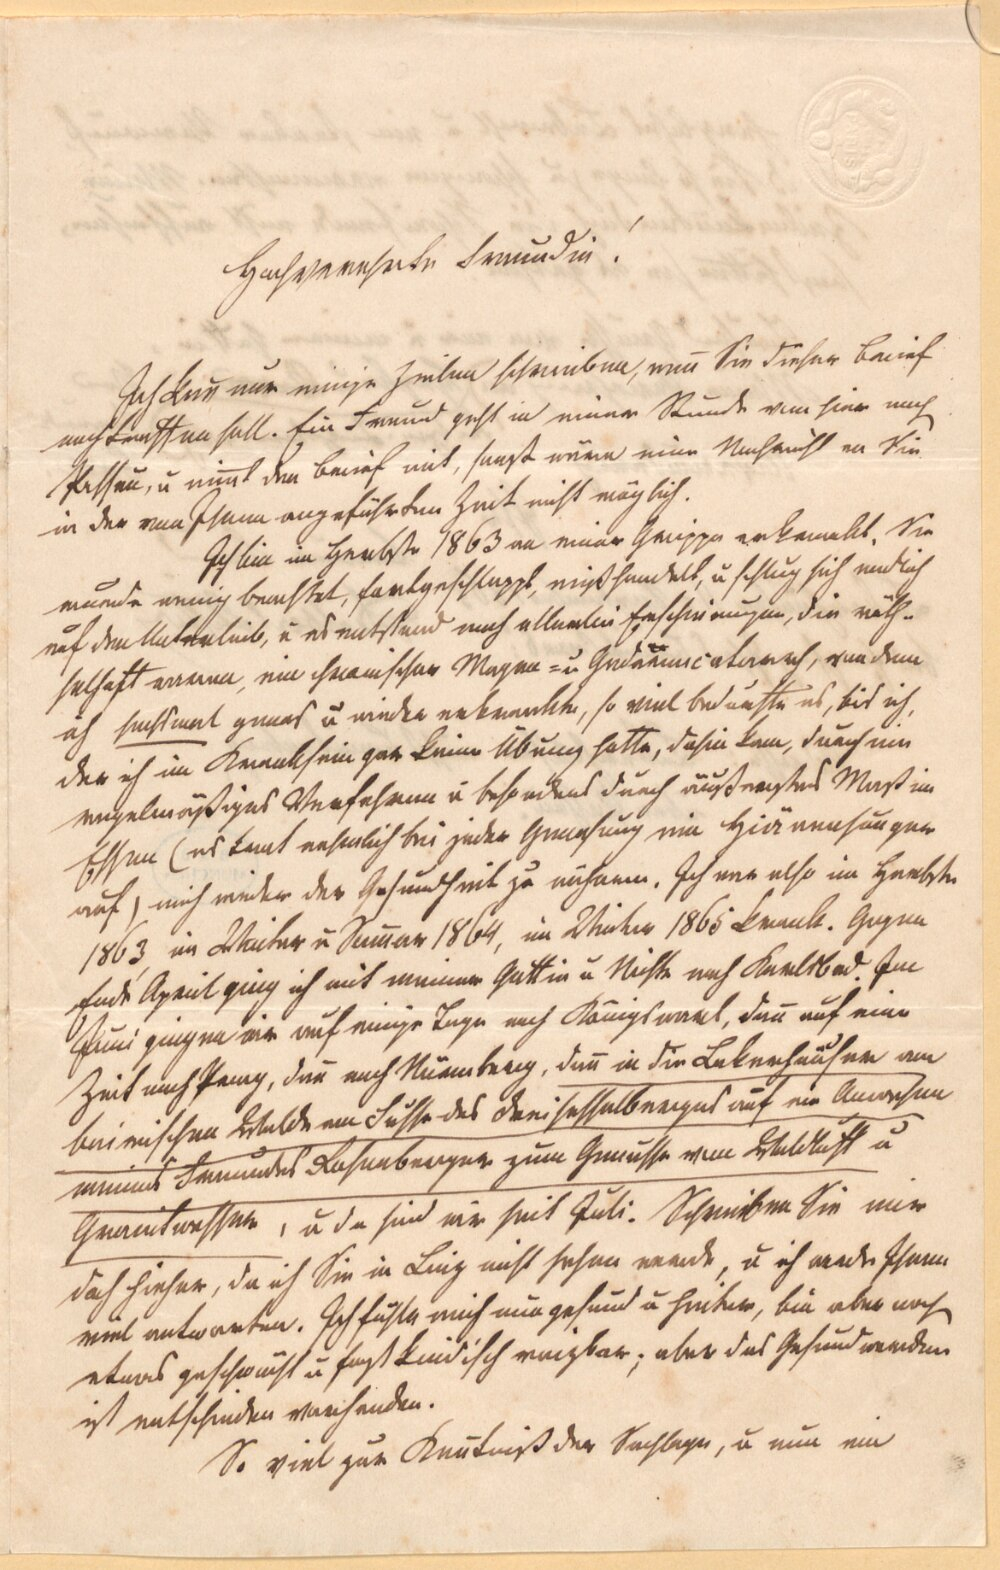 Hochverehrte Freundin!
Ich kan̅ nur einige Zeilen schreiben, wen̅ Sie dieser Brief
noch treffen soll. Ein Freund geht in einer Stunde von hier nach
Passau, u nim̅t den Brief mit, sonst wäre eine Nachricht an Sie
in der von Ihnen angeführten Zeit nicht möglich.
Ich bin im Herbste 1863 an einer Grippe erkrankt. Sie
wurde wenig beachtet, fortgeschleppt, mißhandelt, u schlug sich endlich
auf den Unterleib, u es entstand nach allerlei Erscheinungen, die räth-
selhaft waren, ein chronischer Magen- u Gedärmcatarrh, von dem
ich sechsmal genas u wieder erkrankte, so viel bedurfte es, bis ich,
der ich im Kranksein gar keine Übung hatte, dahin kam, durch ein
regelmäßiges Verfahren u besonders durch äußerstes Maß im
Essen (es trat nehmlich bei jeder Genesung ein Hiärenhunger
auf) mich wieder der Gesundheit zu nähern. Ich war also im Herbste
1863, im Winter u Som̅er 1864, im Winter 1865 krank. Gegen
Ende April ging ich mit meiner Gattin u Nichte nach Karlsbad. Im
Juni gingen wir auf einige Tage nach Königswart, dan̅ auf eine
Zeit nach Prag, dan̅ nach Nürnberg, dan̅ in die Lakerhäuser am
bairischen Walde am Fusse des Dreisesselberges auf ein Anwesen
meines Freundes Rosenberger zum Genusse von Waldluft u
Granitwasser, u da sind wir seit Juli. Schreiben Sie mir
doch hieher, da ich Sie in Linz nicht sehen werde, u ich werde Ihnen
viel antworten. Ich fühle mich nun gesund u heiter, bin aber noch
etwas geschwächt u fast kindisch reizbar; aber das Gesundwerden
ist entschieden vorhanden.
So viel zur Ken̅tniß der Sachlage, u nun ein